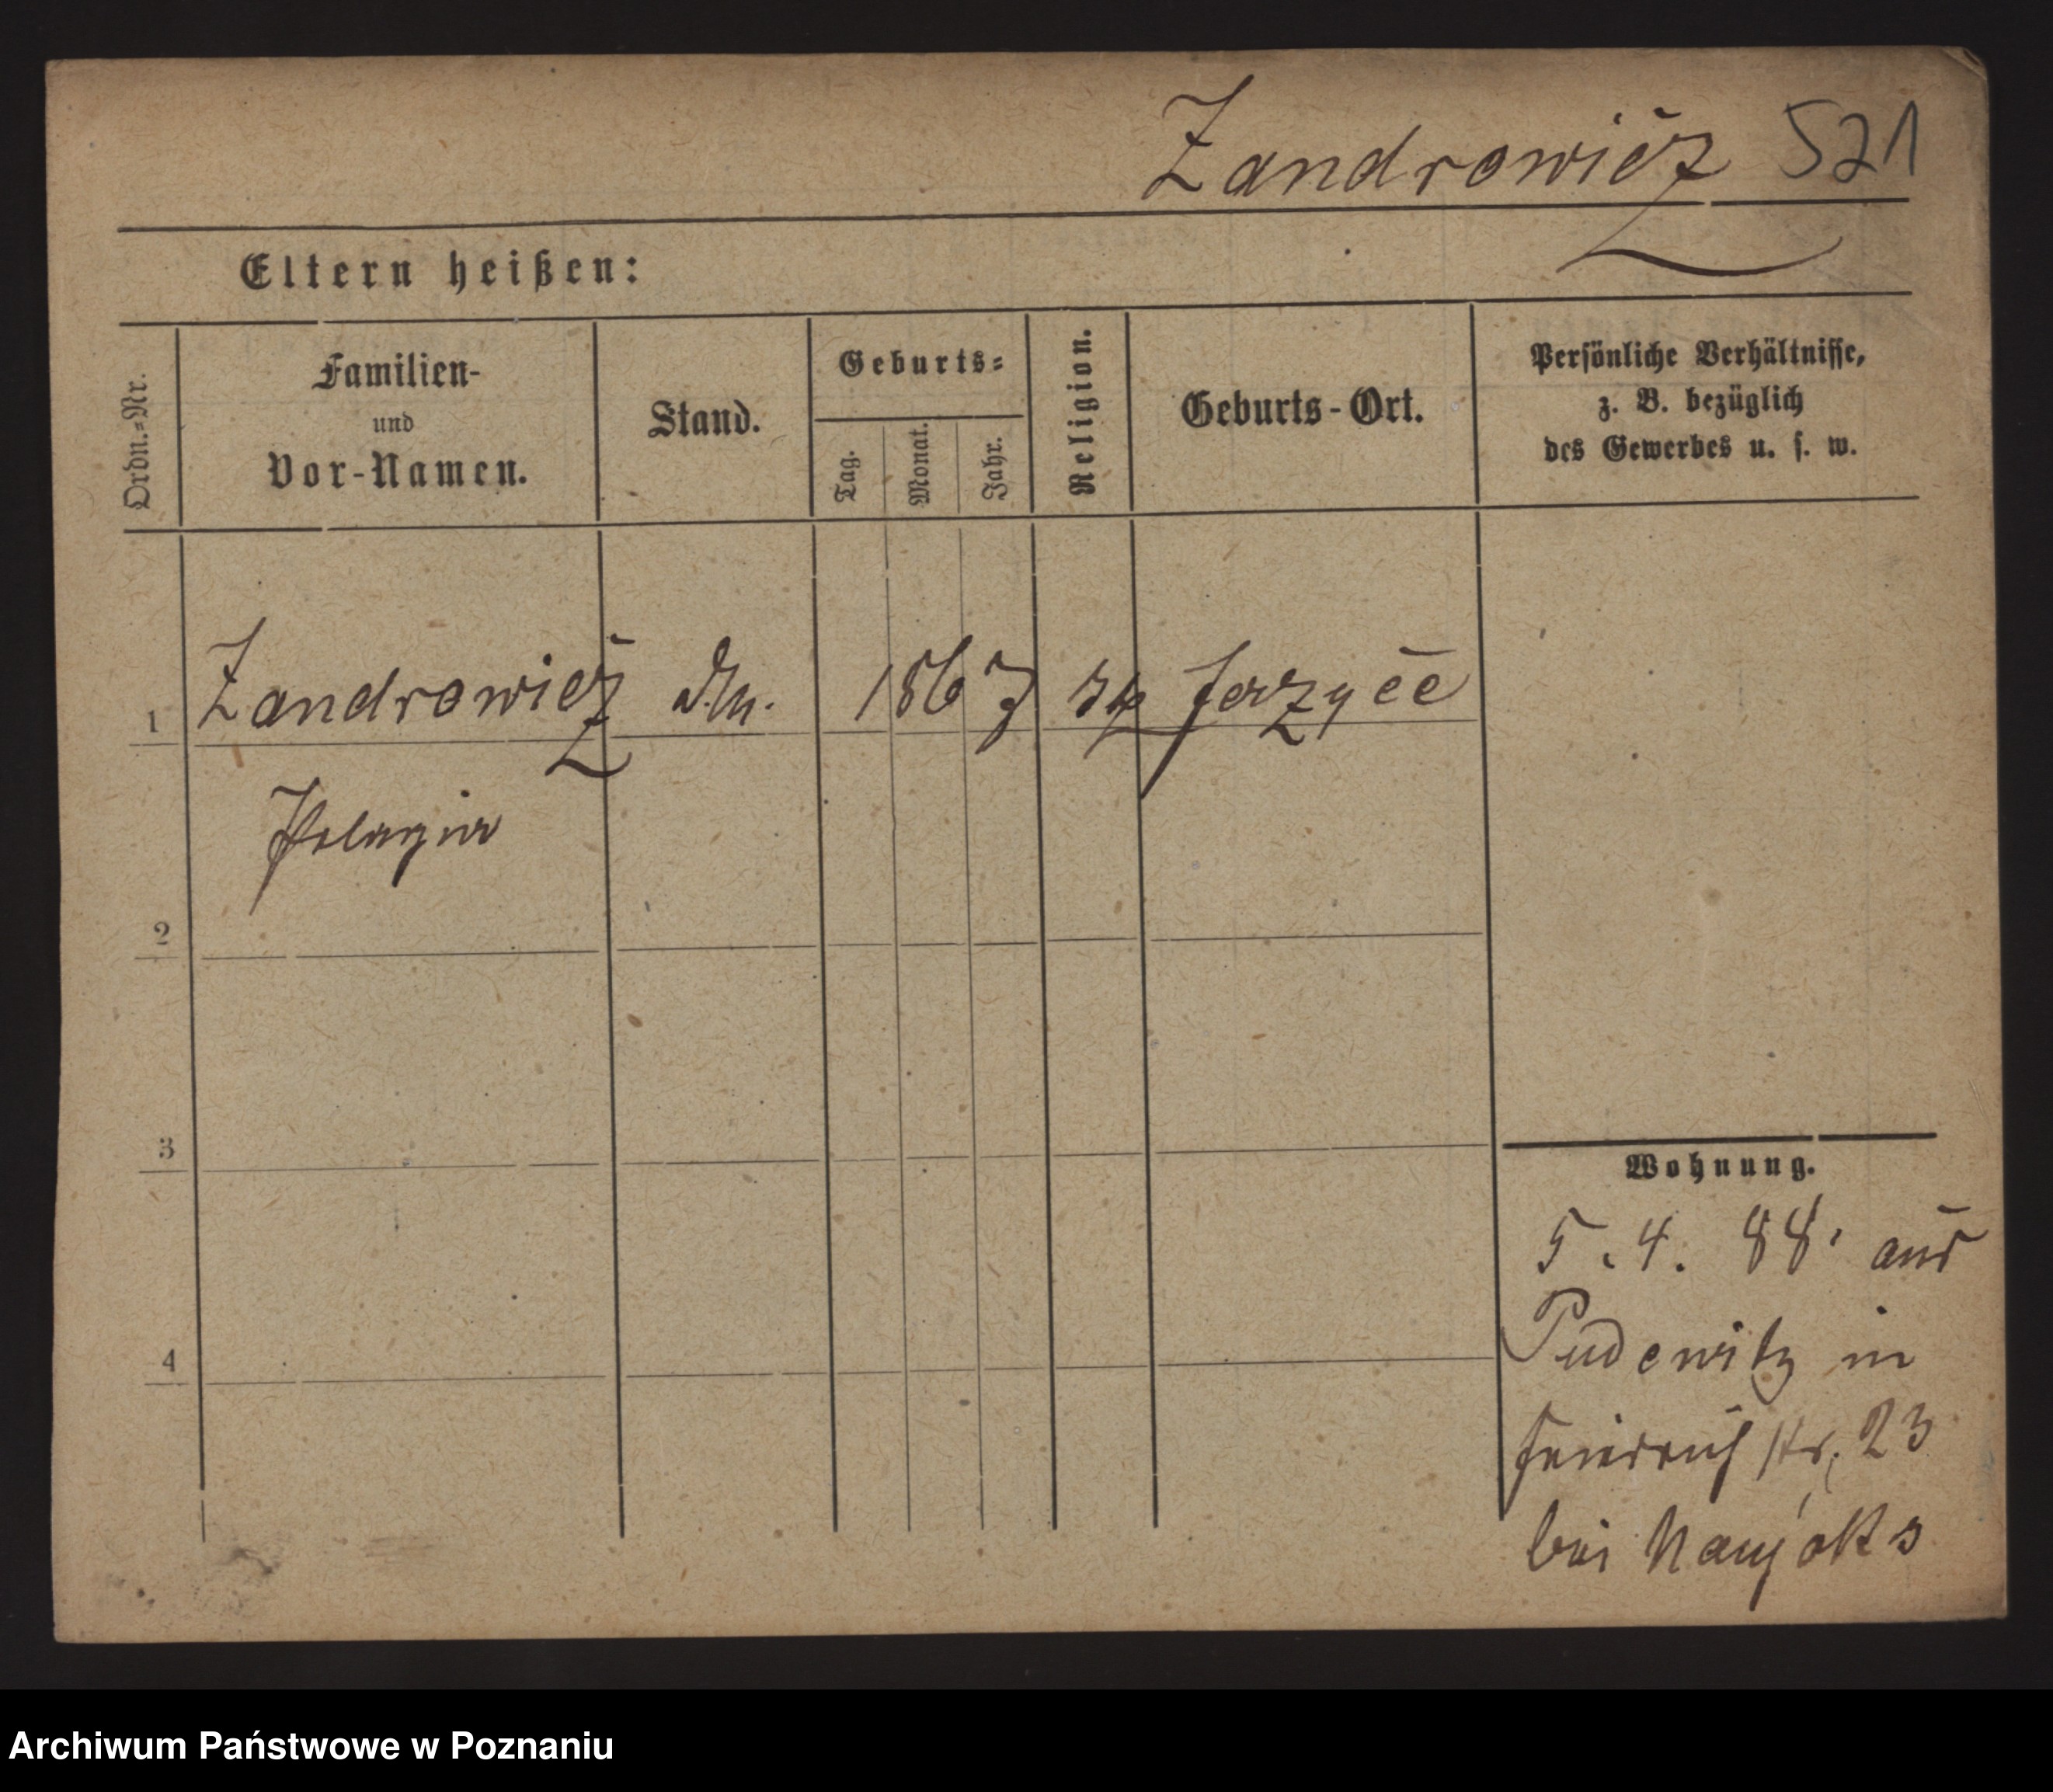 Zandrowicz 521
Eltern heißen:
Ordn.-Nr.
Familien-
und
Vor-Namen.
Stand.
Geburts-
Tag.
Monat.
Jahr.
Religion.
Geburts-Ort.
Persönliche Verhältnisse,
z. B. bezüglich
des Gewerbes u. s. w.
1 Zandrowicz 1867 Jerzyce
Pelagia
2
3
4
Wohnung.
5. 4. 88. aus
Pudewitz in
Friedrich str. 23
bei Naujoks
Archiwum Państwowe w Poznaniu